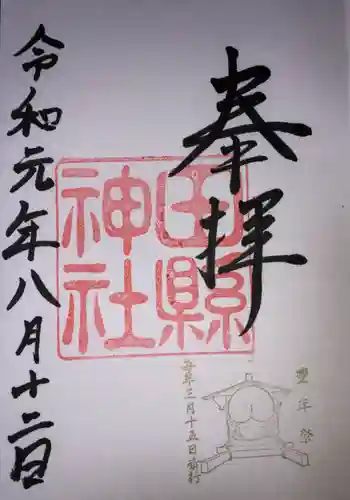 奉拝
田縣神社
豊年祭
毎年三月十五日斎行
令和元年八月十二日